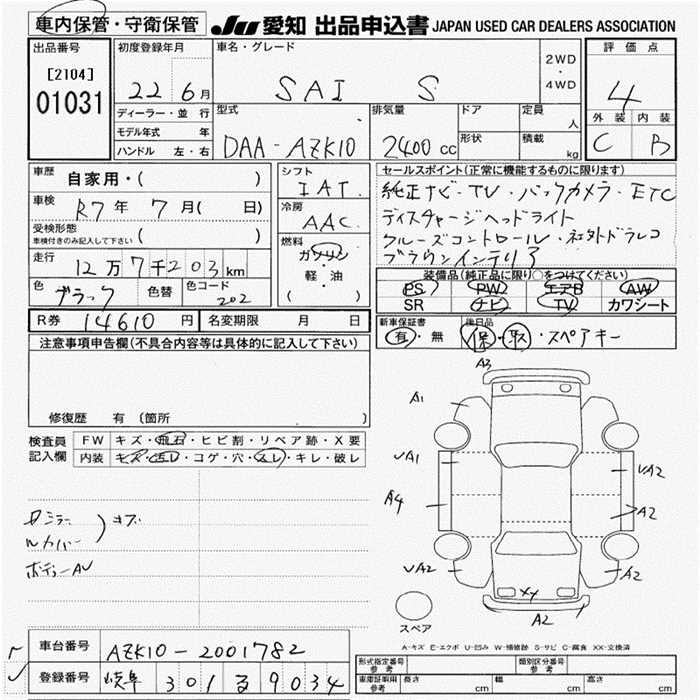 車内保管・守衛保管 JU 愛知 出品申込書 JAPAN USED CAR DEALERS ASSOCIATION
出品番号 初度登録年月 車名・グレード 2WD・4WD 評価点
[2104]
01031 22 6月 SAI S 4
ディーラー・並行 型式 排気量 ドア 定員 人 外装 内装
モデル年式 年 形状 積載 kg C B
ハンドル 左・右 DAA-AZK10 2400cc
車歴 自家用・( ) シフト IAT セールスポイント(正常に機能するものに限ります)
車検 R7年 7月( 日) 冷房 AAC 純正ナビ・TV・バックカメラ・ETC
受検形態 ディスチャージヘッドライト
車検付きのみ記入して下さい ( ) 燃料 クルーズコントロール・社外ドラレコ
走行 12万7千203km ガソリン ブラウンインテリア
・
軽・油
( )
装備品(純正品に限り○をつけてください)
色 ブラック 色替 色コード 202 PS PW エアB AW
SR ナビ TV カワシート
R券 14610円 名変期限 月 日 新車保証書 後日品
有・無 保・取・スペアキー
注意事項申告欄(不具合内容等は具体的に記入して下さい)
修復歴 有 (箇所 )
検査員 FW キズ・飛石・ヒビ割・リペア跡・X要
記入欄 内装 キズ・汚レ・コゲ・穴・スレ・キレ・破レ
A3
A1
A1
A2
A4
A2
A2
A2
A2
ミラー
カバー
キズ
ボディーAU
スペア
A-キズ E-エクボ U-凹み W-補修跡 S-サビ C-腐食 XX-交換済
車台番号 AZK10-2001782
登録番号 岐阜 301 る 9034
形式指定番号 参考 類別区分番号 参考
車庫証明用 参考 長さ cm 幅 cm 高さ cm